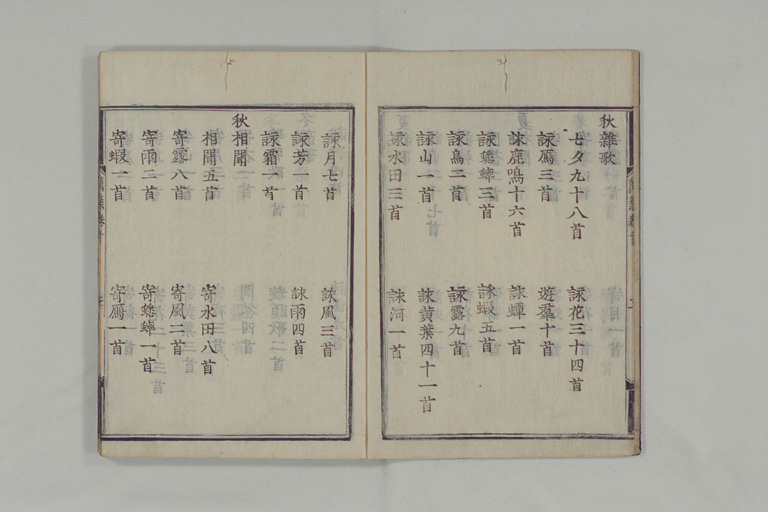 秋雜歌
七夕九十八首 詠花三十四首
詠鴈三首 遊羣十首
詠鹿鳴十六首 詠蟬一首
詠蟋蟀三首 詠蝦五首
詠鳥二首 詠露九首
詠山一首 詠黄葉四十一首
詠水田三首 詠河一首
詠月七首 詠風三首
詠芳一首 詠雨四首
詠霜一首
秋相聞
相聞五首 寄水田八首
寄露八首 寄風二首
寄雨二首 寄蟋蟀一首
寄蝦一首 寄鴈一首